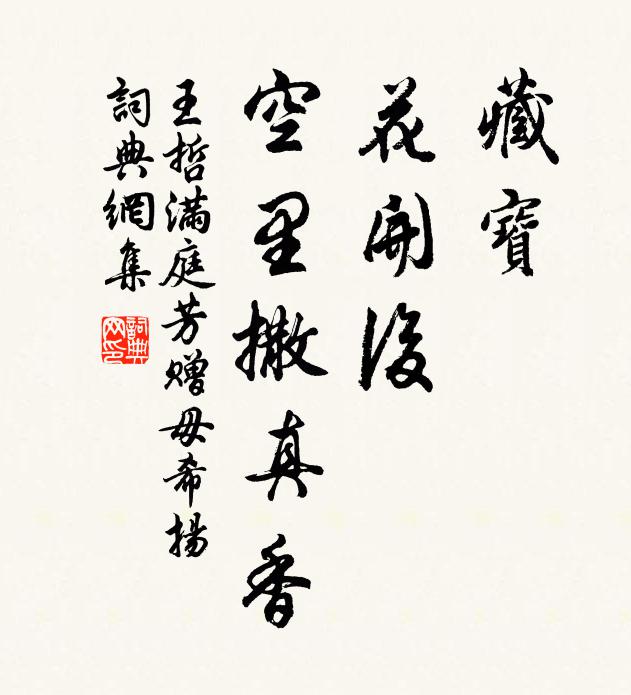 藏寶
花開後
空里撒真香
王哲滿庭芳贈毋希揚
詞典網集
詞典
网印